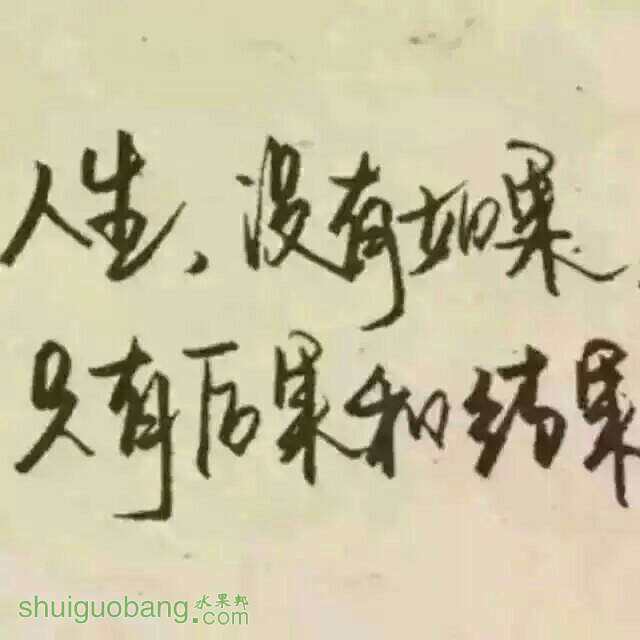 人生，没有如果，
只有后果和结果
水果邦
shuiguobang.com